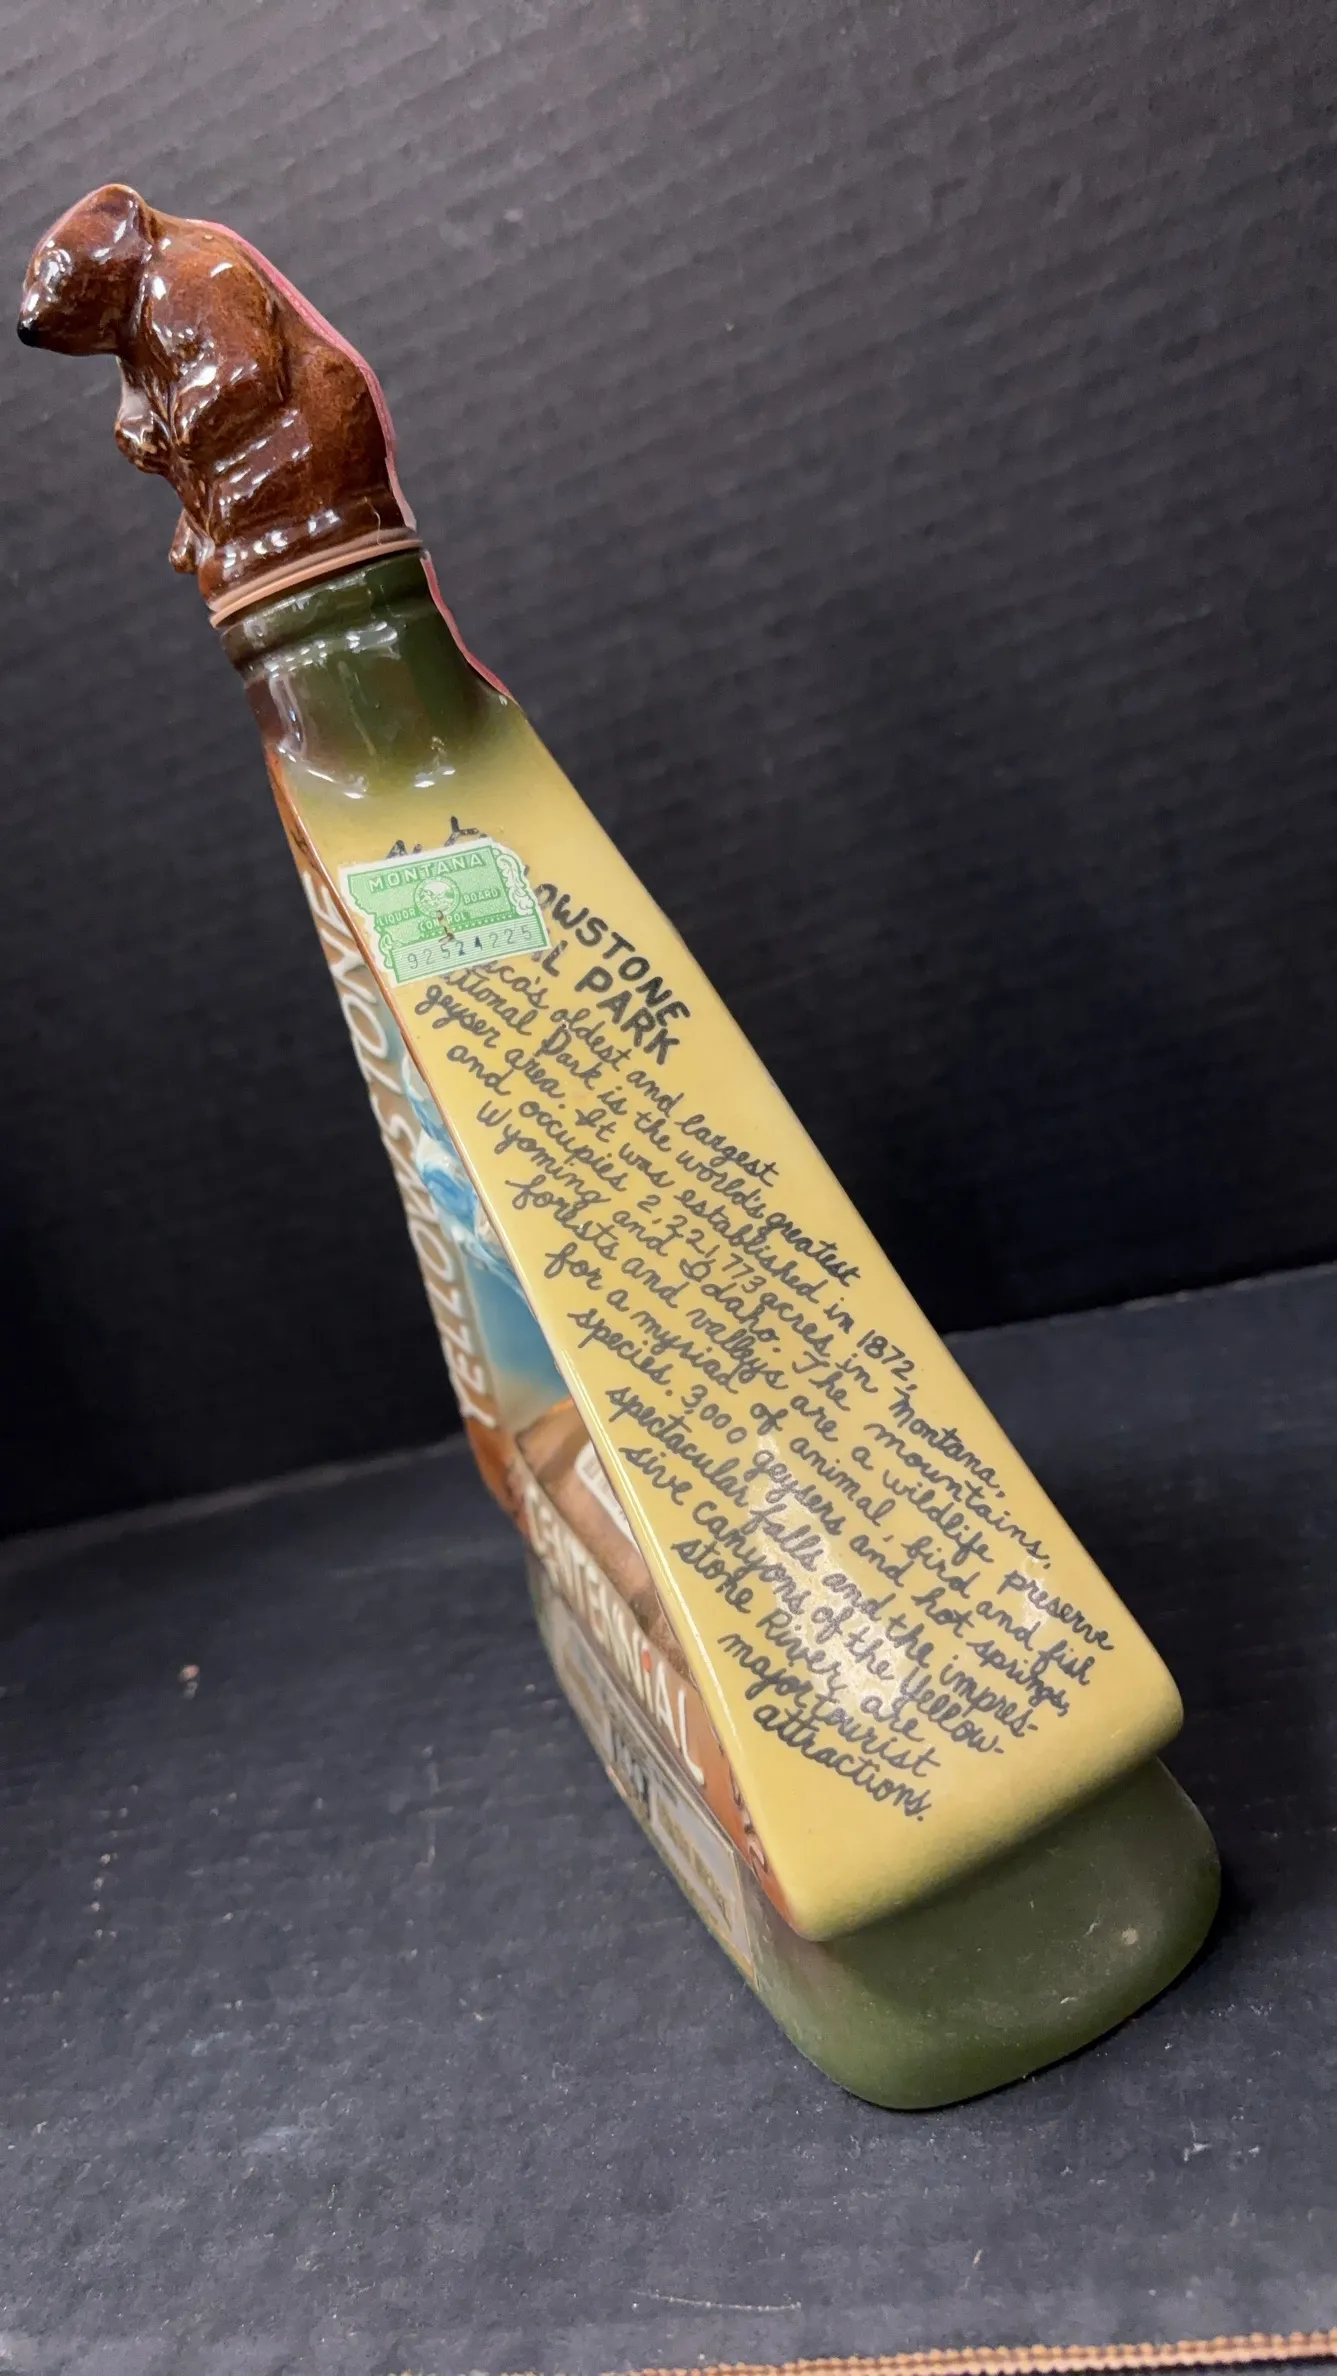 MONTANA
LIQUOR CONTROL BOARD
92524225
OWSTONE
L PARK
ica's oldest and largest
ational Park is the world's greatest
geyser area. It was established in 1872,
and occupies 2,221,773 acres in Montana,
Wyoming and Idaho. The mountains,
forests and valleys are a wildlife preserve
for a myriad of animal, bird and fish
species. 3,000 geysers and hot springs,
spectacular falls and the impres-
sive canyons of the Yellow-
stone River, are
major tourist
attractions.
YELLOWSTONE
CENTENNIAL